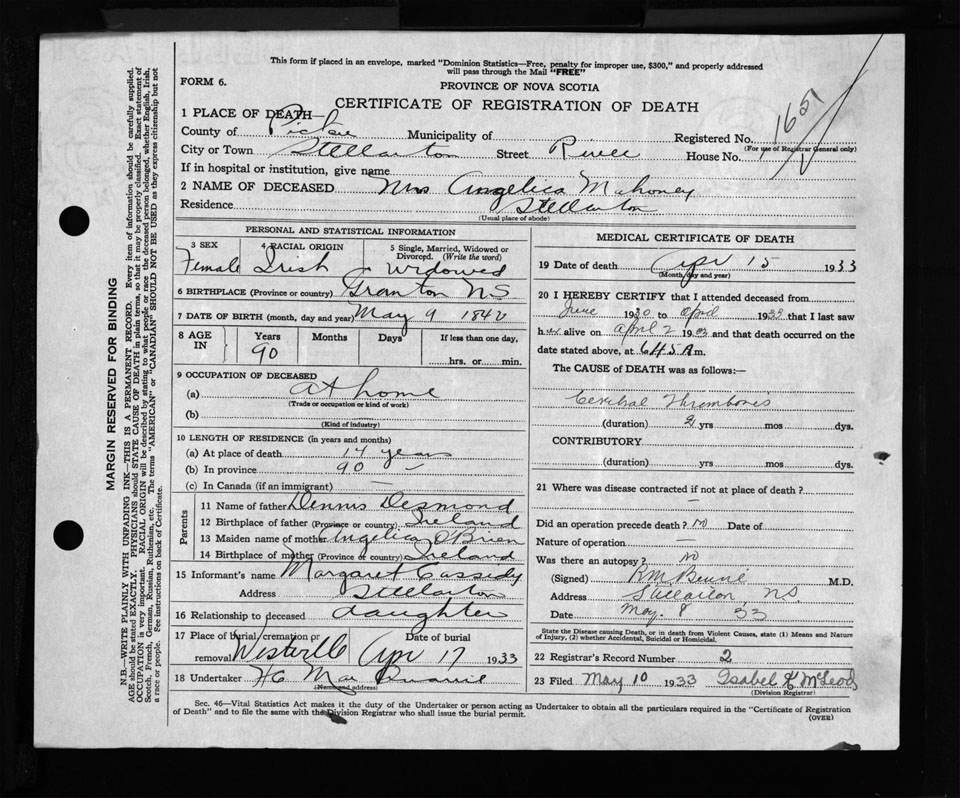 This form if placed in an envelope, marked "Dominion Statistics—Free, penalty for improper use, $300," and properly addressed
will pass through the Mail "FREE"
FORM 6.
PROVINCE OF NOVA SCOTIA
CERTIFICATE OF REGISTRATION OF DEATH
1 PLACE OF DEATH—
County of Pictou Municipality of Registered No.
(For use of Registrar General only)
City or Town Stellarton Street River House No.
If in hospital or institution, give name
2 NAME OF DECEASED Mrs Angelica Mahoney
Residence Stellarton
(Usual place of abode)
PERSONAL AND STATISTICAL INFORMATION
3 SEX 4 RACIAL ORIGIN 5 Single, Married, Widowed or Divorced. (Write the word)
Female Irish Widowed
6 BIRTHPLACE (Province or country) Granton NS
7 DATE OF BIRTH (month, day and year) May 9 1842
8 AGE IN Years Months Days If less than one day,
90 hrs. or min.
9 OCCUPATION OF DECEASED
(a) At home
(Trade or occupation or kind of work)
(b)
(Kind of industry)
10 LENGTH OF RESIDENCE (in years and months)
(a) At place of death 14 years
(b) In province 90 —
(c) In Canada (if an immigrant) —
Parents
11 Name of father Dennis Desmond
12 Birthplace of father (Province or country) Ireland
13 Maiden name of mother Angelica O'Brien
14 Birthplace of mother (Province or country) Ireland
15 Informant's name Margaret Cassidy
Address Stellarton
16 Relationship to deceased daughter
17 Place of burial, cremation or removal Westville Date of burial Apr 17 1933
18 Undertaker
(Name and address)
MEDICAL CERTIFICATE OF DEATH
19 Date of death Apr 15 1933
(Month, day and year)
20 I HEREBY CERTIFY that I attended deceased from
June 1930 to April 1933 that I last saw
h er alive on April 2 1933 and that death occurred on the
date stated above, at 6 45 A m.
The CAUSE of DEATH was as follows:—
Cerebral Thrombosis
(duration) 2 yrs mos dys.
CONTRIBUTORY
(duration) yrs mos dys.
21 Where was disease contracted if not at place of death? —
Did an operation precede death? No Date of
Nature of operation —
Was there an autopsy? no
(Signed) M.D.
Address Stellarton, NS
Date May. 8 33
State the Disease causing Death, or in death from Violent Causes, state (1) Means and Nature
of Injury, (2) whether Accidental, Suicidal or Homicidal.
22 Registrar's Record Number 2
23 Filed May 10 1933 Isabel McLeod
(Division Registrar)
Sec. 46—Vital Statistics Act makes it the duty of the Undertaker or person acting as Undertaker to obtain all the particulars required in the "Certificate of Registration
of Death" and to file the same with the Division Registrar who shall issue the burial permit.
(OVER)
MARGIN RESERVED FOR BINDING
N.B.—WRITE PLAINLY WITH UNFADING INK—THIS IS A PERMANENT RECORD. Every item of information should be carefully supplied.
AGE should be stated EXACTLY. PHYSICIANS should STATE CAUSE OF DEATH in plain terms, so that it may be properly classified. Exact statement of
OCCUPATION is very important. RACIAL ORIGIN will be described by stating to what people or race the deceased person belonged, whether English, Irish,
Scotch, French, German, Russian, Ruthenian, etc. The terms "AMERICAN" or "CANADIAN" SHOULD NOT BE USED as they express citizenship but not
a race or people. Fee instructions on back of Certificate.